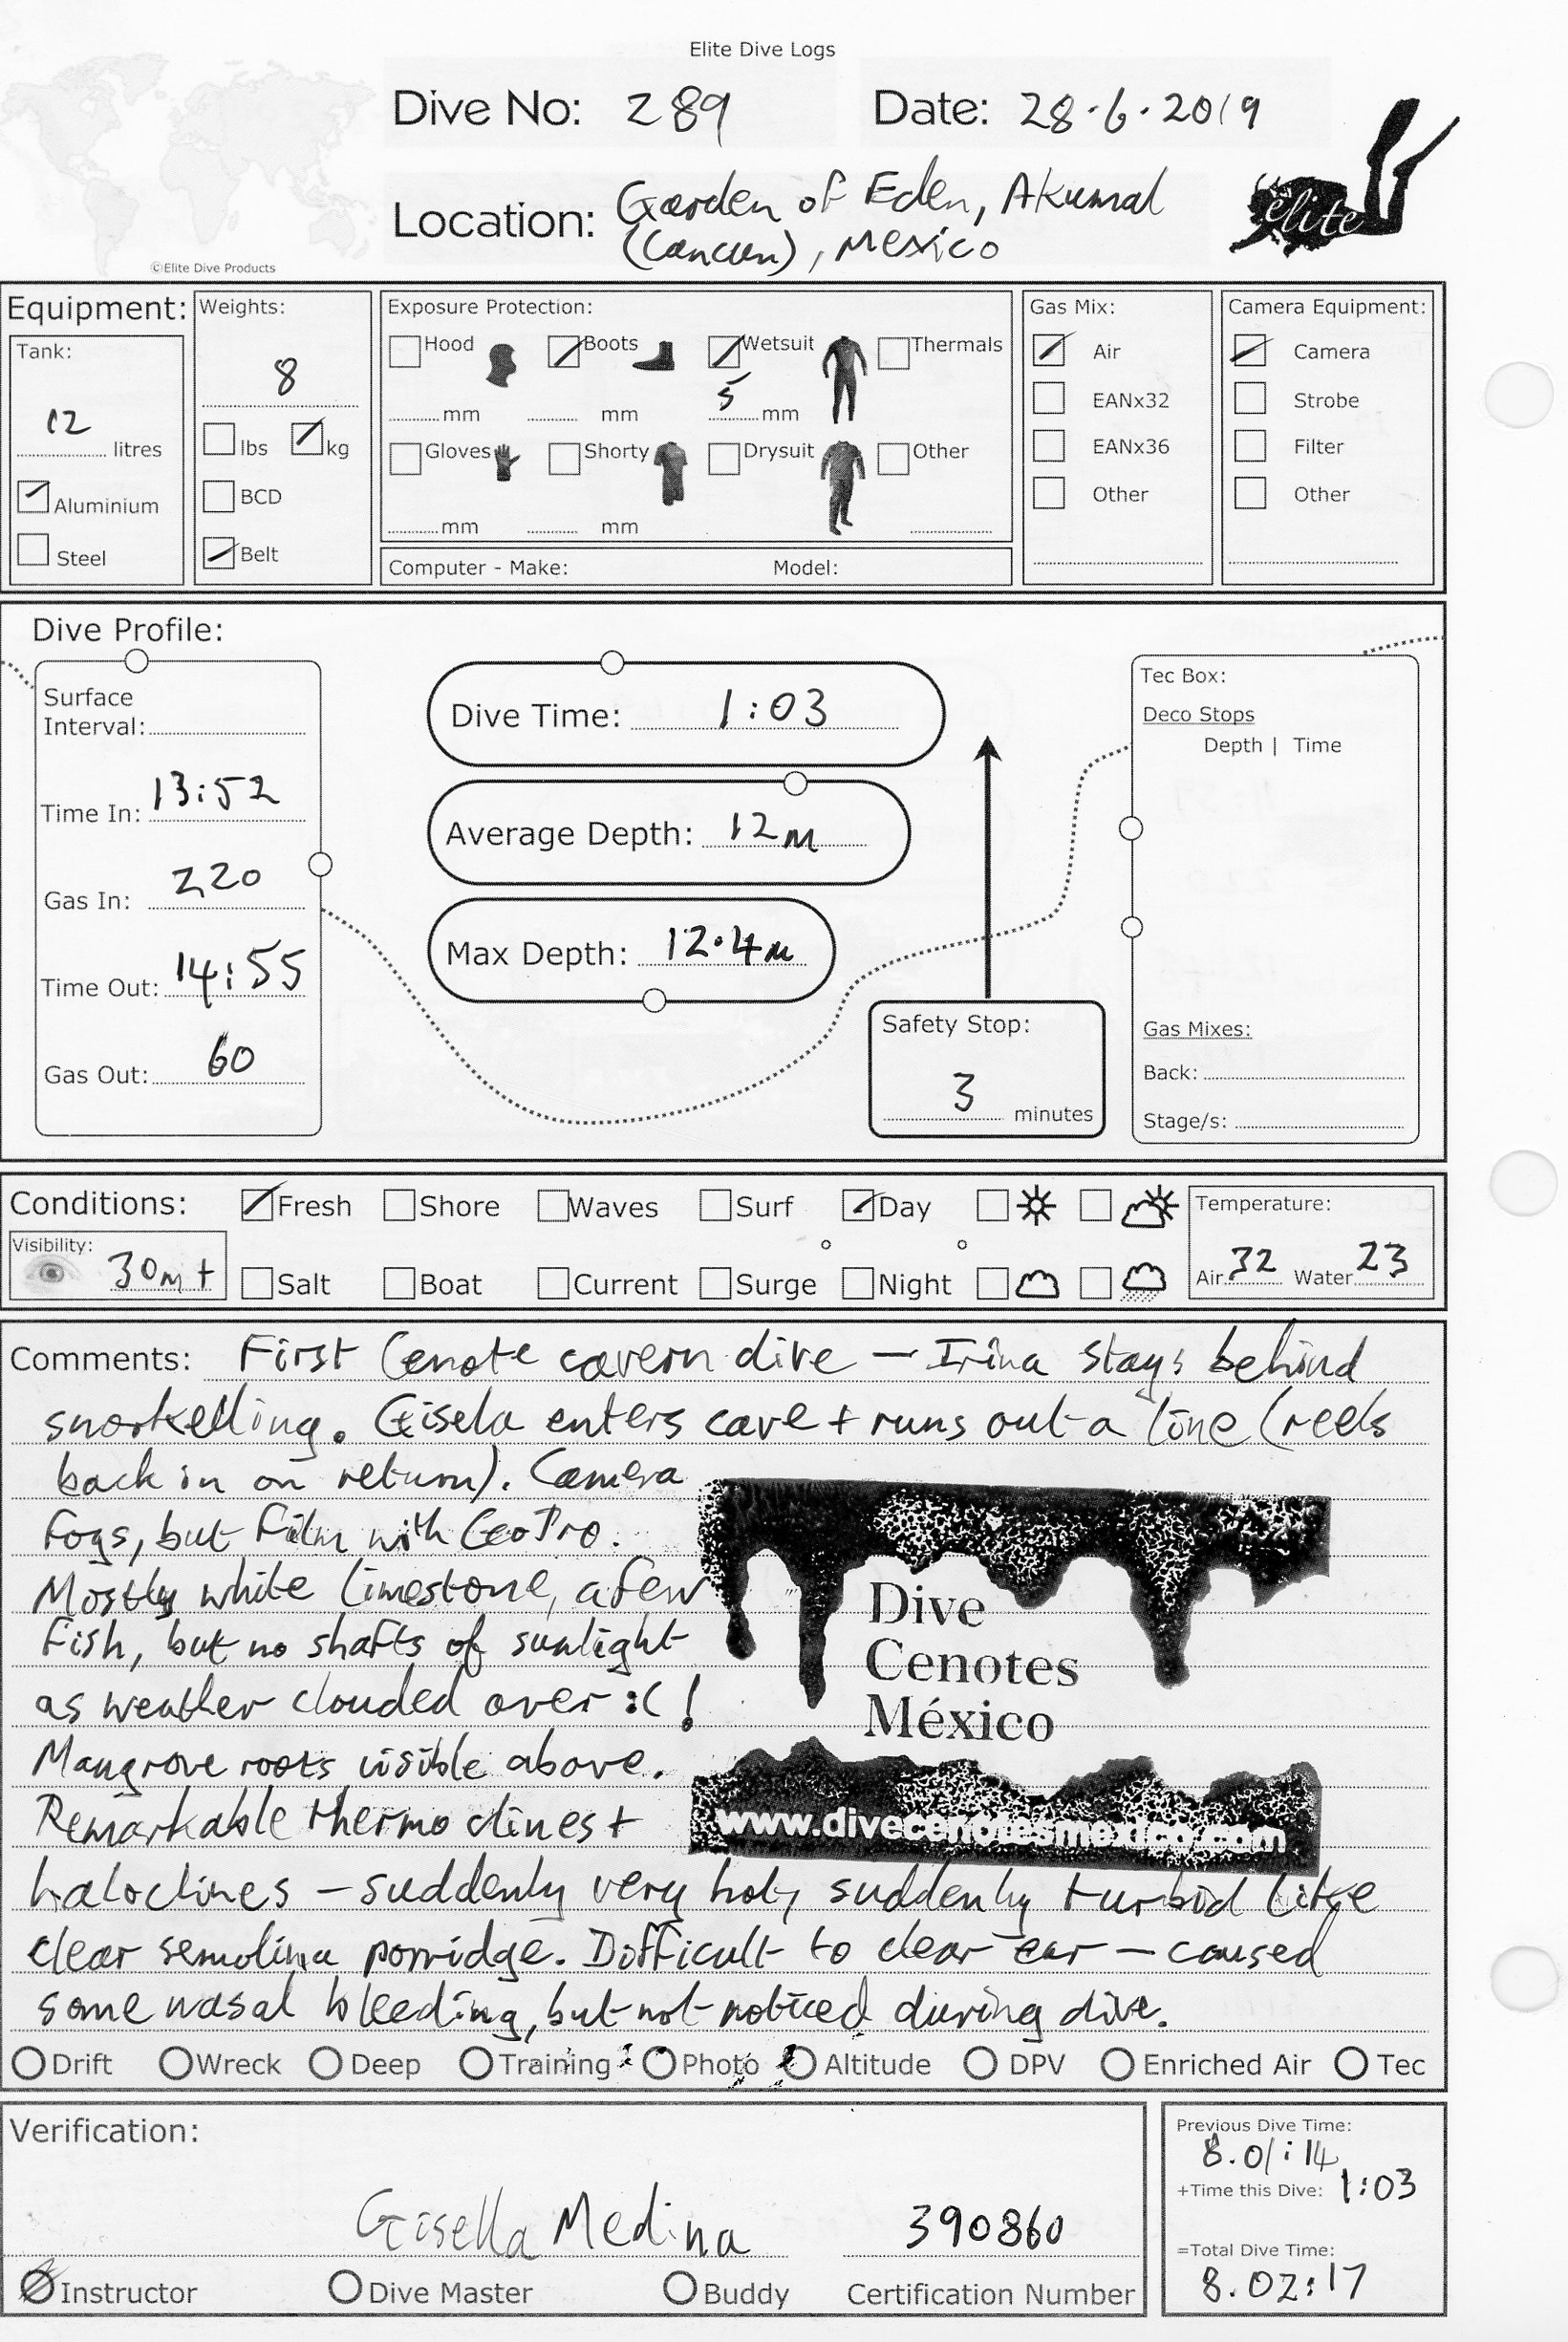 Elite Dive Logs
Dive No: 289
Date: 28.6.2019
Location: Garden of Eden, Akumal
(Cancun), Mexico
elite
©Elite Dive Products
Equipment:
Tank:
12 litres
Aluminium
Steel
Weights:
8
lbs kg
BCD
Belt
Exposure Protection:
Hood Boots Wetsuit Thermals
mm mm 5 mm
Gloves Shorty Drysuit Other
mm mm
Computer - Make: Model:
Gas Mix:
Air
EANx32
EANx36
Other
Camera Equipment:
Camera
Strobe
Filter
Other
Dive Profile:
Surface
Interval:
Time In: 13:52
Gas In: 220
Time Out: 14:55
Gas Out: 60
Dive Time: 1:03
Average Depth: 12m
Max Depth: 12.4m
Safety Stop:
3 minutes
Tec Box:
Deco Stops
Depth | Time
Gas Mixes:
Back:
Stage/s:
Conditions: Fresh Shore Waves Surf Day
Visibility: 30m+
Salt Boat Current Surge Night
Temperature:
Air 32 Water 23
Comments: First Cenote cavern dive – Irina stays behind
snorkelling. Gisela enters cave + runs out a line (reels
back in on return). Camera
fogs, but film with GoPro.
Mostly white limestone, a few
fish, but no shafts of sunlight
as weather clouded over :( !
Mangrove roots visible above.
Remarkable thermoclines +
haloclines – suddenly very hot, suddenly turbid like
clear semolina porridge. Difficult to clear ear – caused
some nasal bleeding, but not noticed during dive.
Dive
Cenotes
México
www.divecenotesmexico.com
Drift Wreck Deep Training Photo Altitude DPV Enriched Air Tec
Verification:
Gisella Medina 390860
Instructor Dive Master Buddy Certification Number
Previous Dive Time:
8.01:14
+Time this Dive: 1:03
=Total Dive Time:
8.02:17